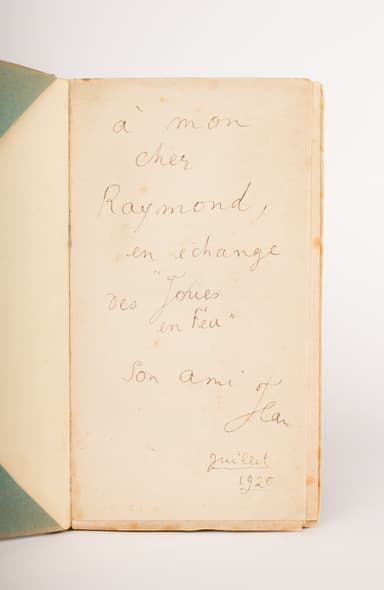 à mon
cher
Raymond,
en échange
des "Joues
en Feu"
Son ami
Jean
Juillet
1920